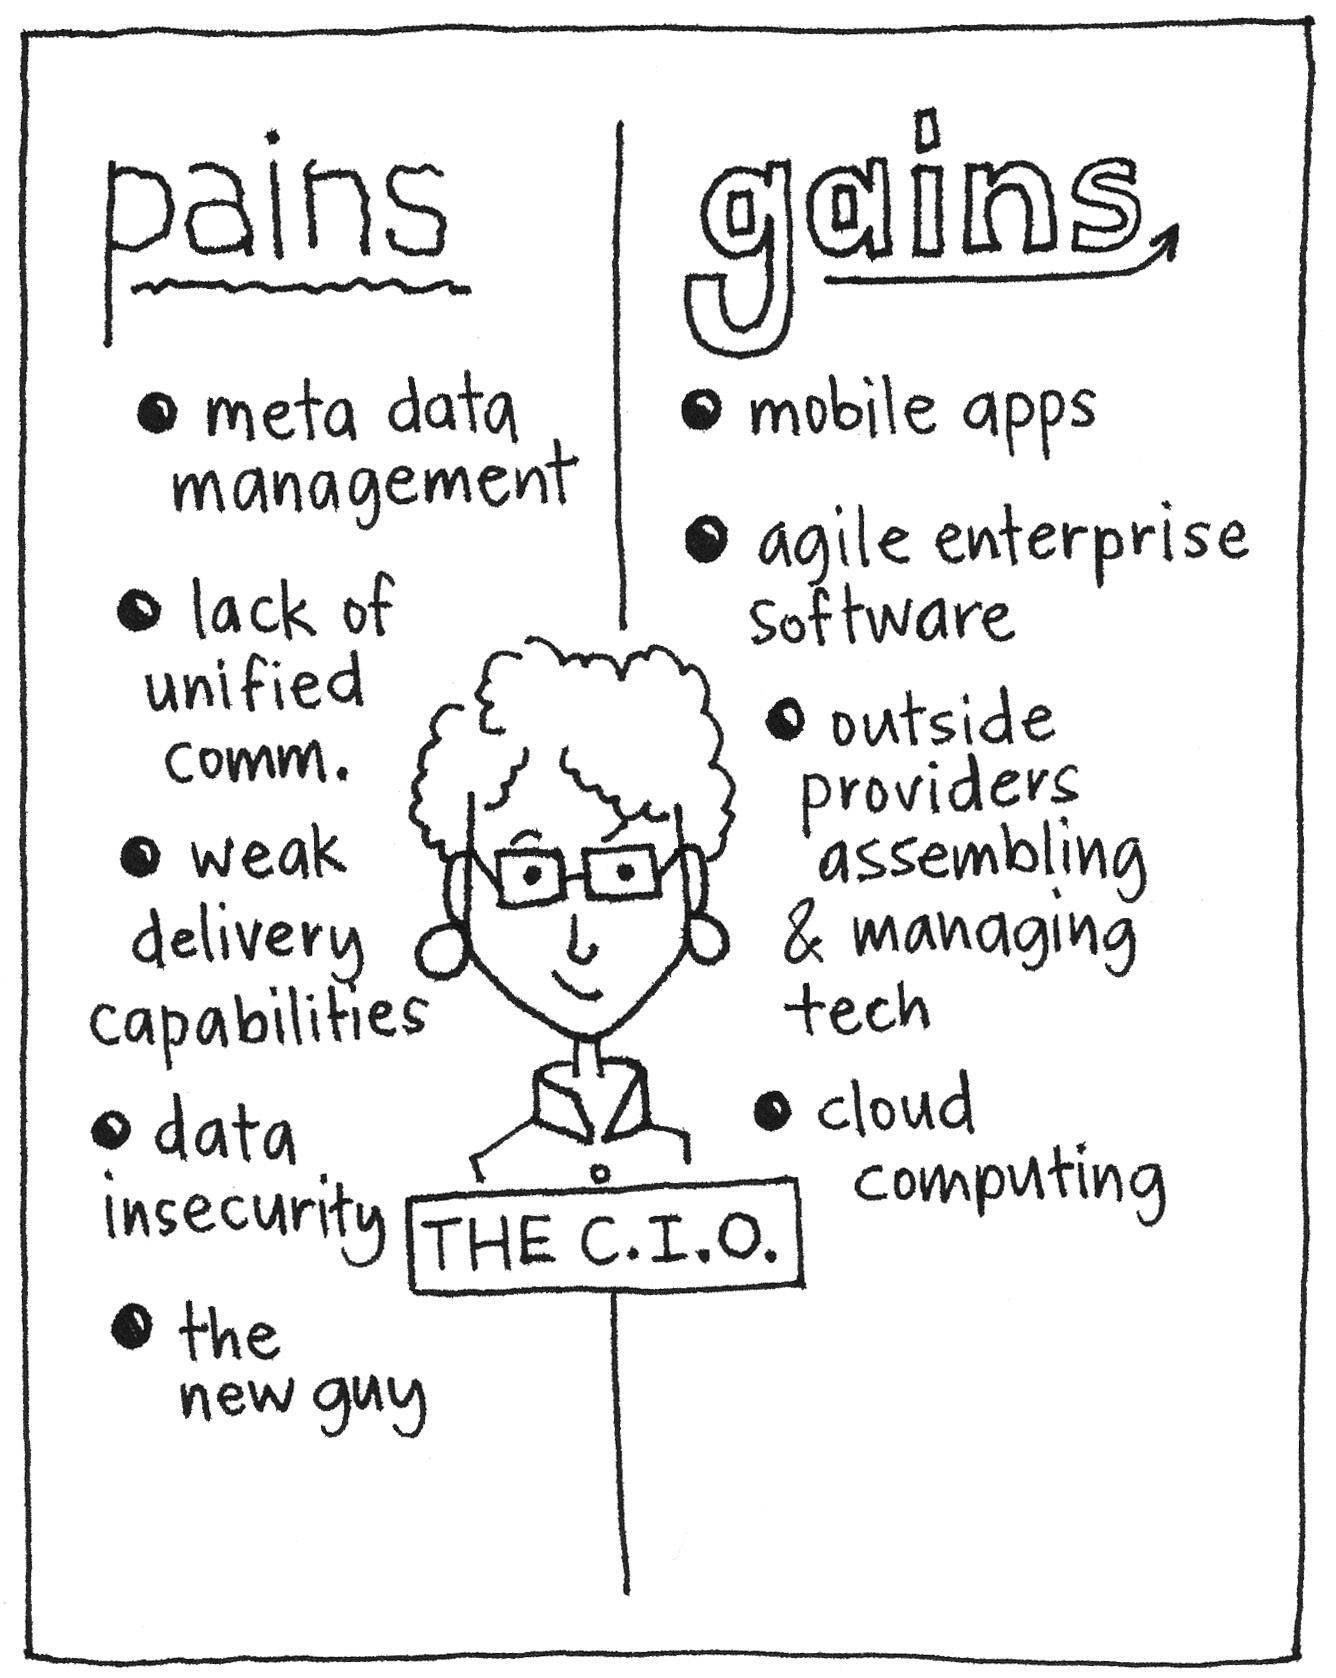 pains
● meta data
management
● lack of
unified
comm.
● weak
delivery
capabilities
● data
insecurity
● the
new guy
gains
● mobile apps
● agile enterprise
software
● outside
providers
assembling
& managing
tech
● cloud
computing
THE C.I.O.